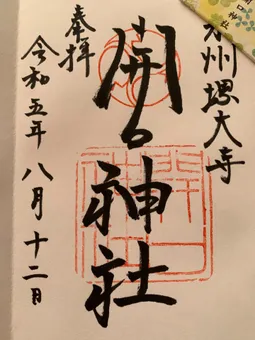 泉州堺大寺
開口神社
奉拝
令和五年八月十二日